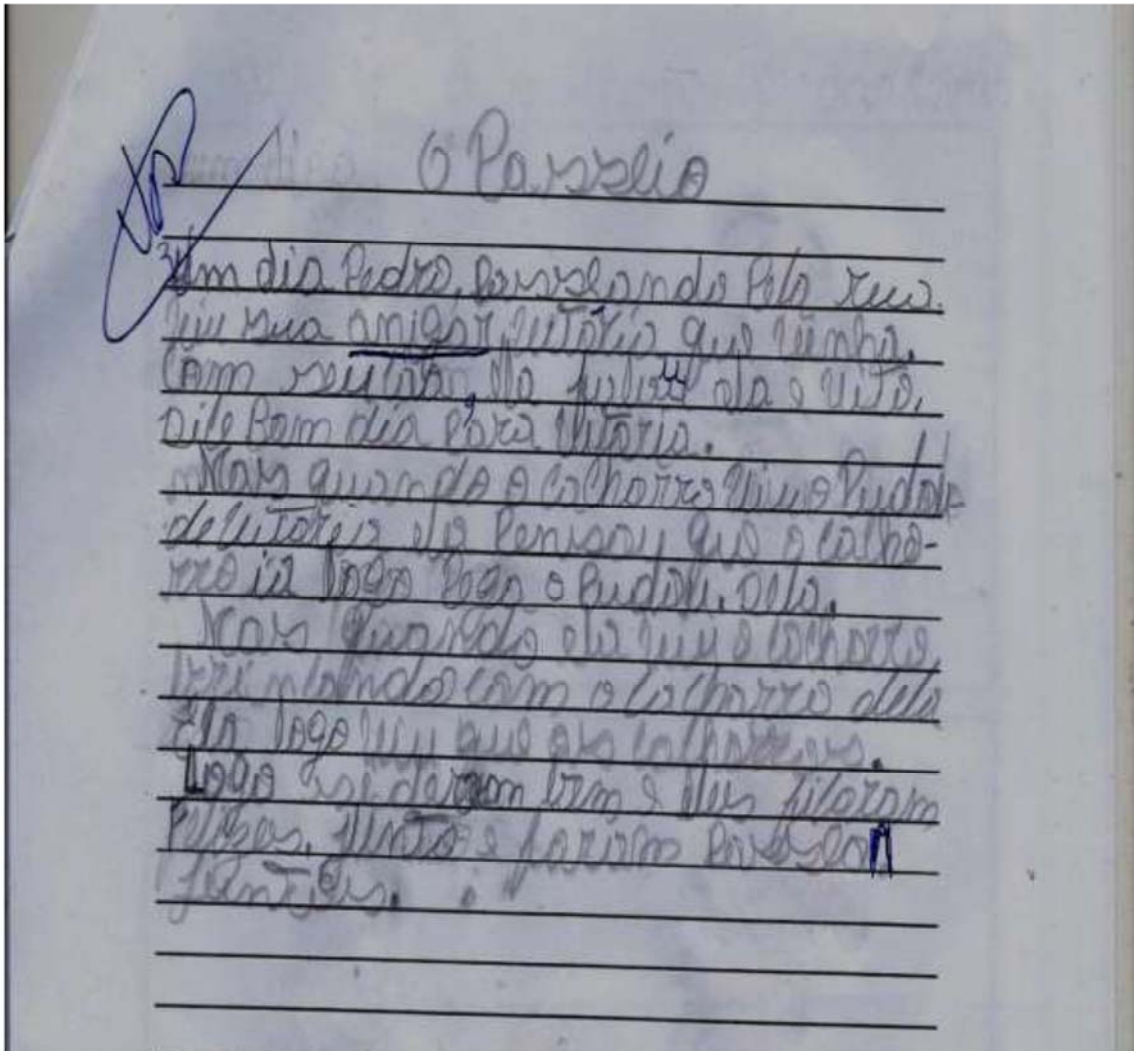 O Passeio
Um dia Pedro, passeando Pela rua.
viu sua amigar vitoria que vinha,
Com seu cão, ela ela e
dile Bom dia Para Vitoria.
Mas quando o cachorro viu o Pudou
de vitoria ela Penisou que o cacho-
rro ia logo Pega o Pudou. dela.
Mas quando ela viu o cachorro,
brincando com o cachorro dela
Ela logo viu que os cachorros.
Logo se deram bem e eles ficaram
felizes, junto e foram Passear
juntos.